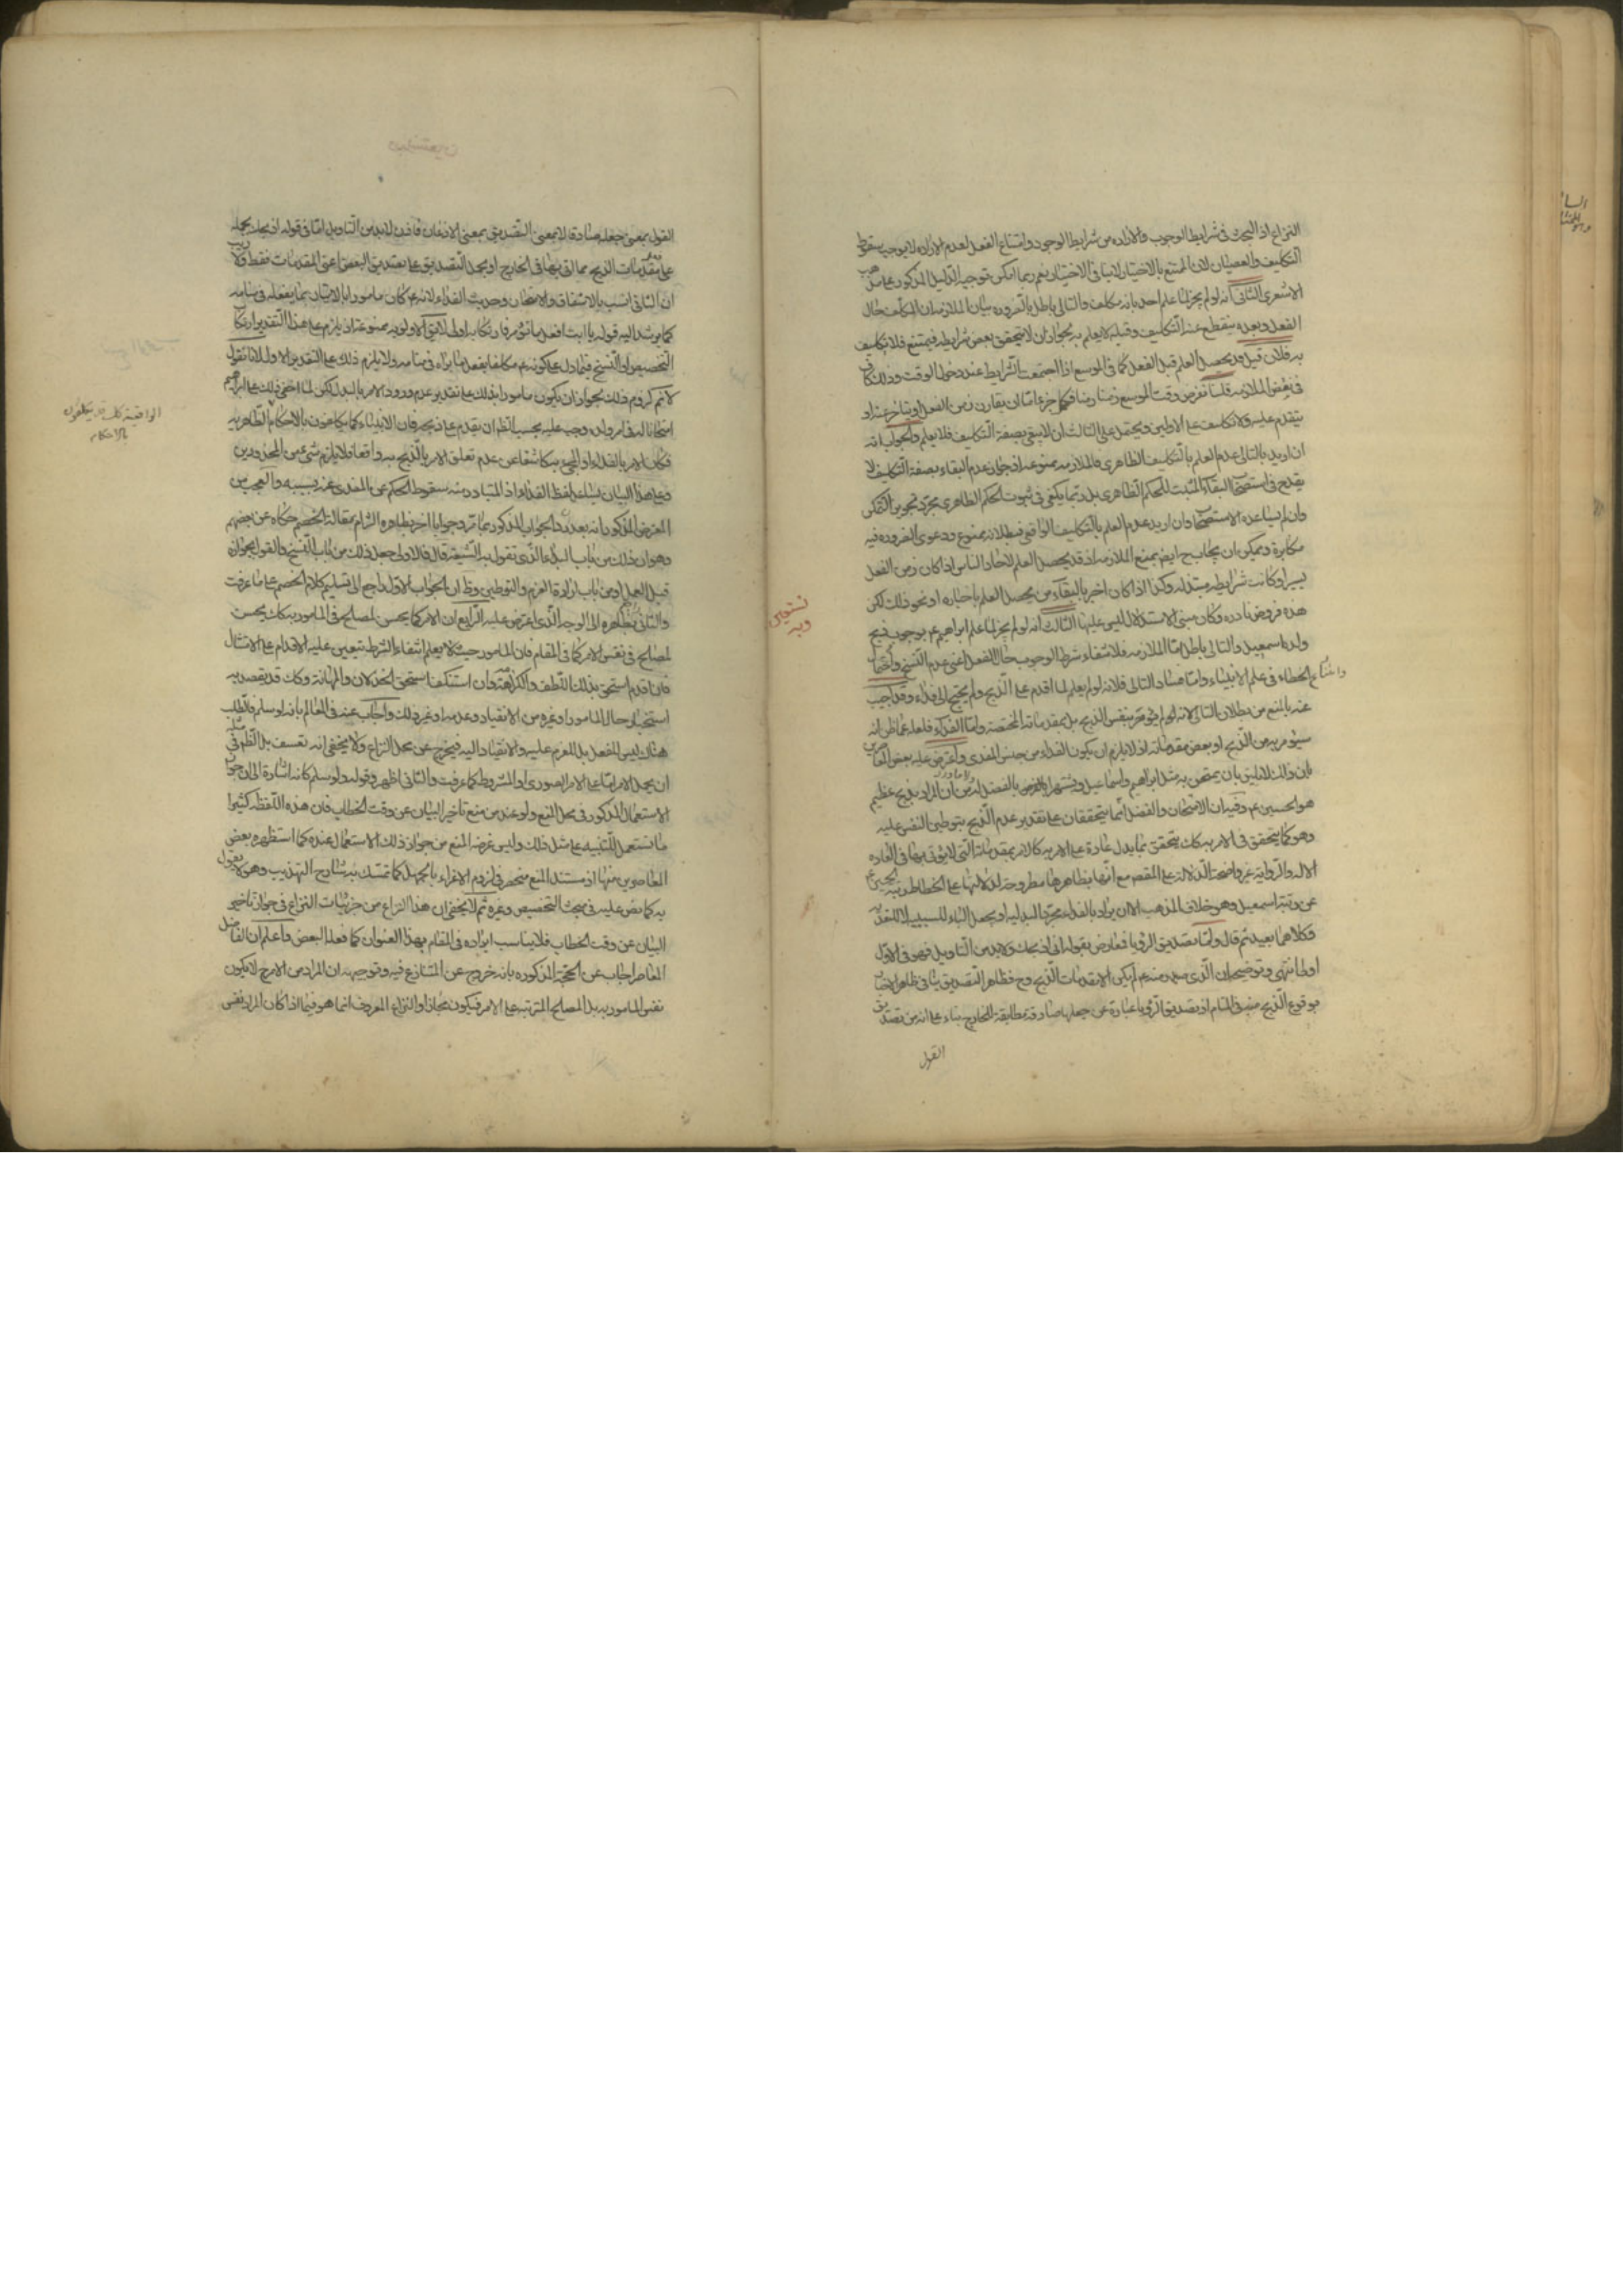 النزاع اذ البحث فى شرايط الوجوب والاراده من شرايط الوجود وامتناع الفعل لعدم الاراده لا يوجب سقوط
التكليف والعصيان لان الممتنع بالاختيار لا ينافى الاختيار نعم ربما امكن توجيه الدليل المذكور على مذهب
الاشعرى الثانى انه لو لم يجز لما علم احد بانه مكلف والتالى باطل بالضروره بيان الملازمه ان المكلف حال
الفعل وبعده ينقطع عنه التكليف وقبله لا يعلم به لجواز ان لا يتحقق بعض شرايطه فيمتنع فلا تكليف
به فلان قيل قد يحصل العلم قبل الفعل كما فى الموسع اذا اجتمعت الشرايط عند دخول الوقت وذلك كاف
فى نقض الملازمه قلنا نفرض وقت الموسع زمنا زمنا فكل جزء اما ان يقارن زمن الفعل او يتاخر عنه او
يتقدم عليه ولا تكليف على الاولين ويحتمل على الثالث ان لا يبقى بصفة التكليف فلا يعلم والجواب انه
ان اريد بالتالى عدم العلم بالتكليف الظاهرى فالملازمه ممنوعه اذ جواز عدم البقاء بصفة التكليف لا
يقدح فى استصحاب البقاء المثبت للحكم الظاهرى بل ربما يكفى فى ثبوت الحكم الظاهرى مجرد تجويز التمكن
وان لم يساعده الاستصحاب وان اريد عدم العلم بالتكليف الواقعى فبطلانه ممنوع ودعوى الضروره فيه
مكابرة ويمكن ان يجاب ح ايضا بمنع الملازمه اذ قد يحصل العلم لاحاد الناس اذا كان زمن الفعل
يسيرا وكانت شرايطه مبتذله وكذا اذا كان اخبر بالبقاء من يحصل العلم باخباره او نحو ذلك لكن
هذه فروض نادره وكان مبنى الاستدلال ليس عليها الثالث انه لو لم يجز لما علم ابراهيم ع بوجوب ذبح
ولده اسمعيل والتالى باطل اما الملازمه فلانتفاء شرط الوجوب حال الفعل اعنى عدم النسخ
وامتناع الخطاء فى علم الانبياء واما فساد التالى فلانه لو لم يعلم لما اقدم على الذبح ولم يحتج الى فداء وقد اجيب
عنه بالمنع من بطلان التالى لانه لو لم يؤمر بنفس الذبح بل بمقدماته المختصه واما الفداء فلعله عما ظن انه
سيؤمر به من الذبح او بعض مقدماته اذ لا يلزم ان يكون الفداء من جنس المفدى واعترض عليه بعض المعاصرين
بان ذلك لا يليق بان يمتحن به مثل ابراهيم واسماعيل ويشتهرا بالفضل لذلك من ان المراد بذبح عظيم
هو الحسين ع وفيه ان الامتحان والفضل انما يتحققان على تقدير عدم الذبح بتوطين النفس عليه
وهو كما يتحقق فى الامر به كك يتحقق بما يدل عادة على الامر به كالامر بمقدماته التى لا يؤتى بها فى العاده
الا له والرواية غير واضحة الدلالة على المقصد مع انها بظاهرها مطروحه لدلالتها على انحطاط رتبة الحسين ع
عن رتبة اسمعيل وهو خلاف المذهب الا ان يراد بالفداء مجرد البدليه او يجعل الباء للسببيه لا للتعديه
وكلاهما بعيد ثم قال واما تصديق الرؤيا فمعارض بقوله انى اذبحك ولا بد من التاويل فهو فى الاول
اولى انتهى وتوضيحه ان الذى صدر منه ع لم يكن الا مقدمات الذبح وح فظاهر التصديق ينافى ظاهر الاخبار
بوقوع الذبح منه فى المنام اذ تصديق الرؤيا عبارة عن جعلها صادقة مطابقة للخارج بناء على انه من تصديق
القول
نستعين
وبه
القول بمعنى جعله صادقا لا بمعنى التصديق بمعنى الاذعان فاذن لا بد من التاويل اما فى قوله اذبحك بحمله
على مقدمات الذبح مما اتى بها فى الخارج او بحمل التصديق على تصديق البعض اعنى المقدمات فقط ولا ريب
ان الثانى انسب بالاشفاق والامتحان وحديث الفداء لانه ع كان مامورا بالاتيان بما يفعله فى منامه
كما يرشد اليه قوله يا ابت افعل ما تؤمر فارتكابه اولى لا يقال الاولويه ممنوعة اذ يلزم على هذا التقدير ارتكاب
التخصيص او النسخ فيما دل على كونه ع مكلفا بفعل ما يراه فى منامه ولا يلزم ذلك على التقدير الاول لانا نقول
لا نم لزوم ذلك لجواز ان يكون مامورا بذلك على تقدير عدم ورود الامر بالبدل لكن لما اخفى ذلك على ابراهيم
امتحانا له فى امر ولده وجب عليه بحسب الظم ان يقدم على ذبحه فان الانبياء كما يكلفون بالاحكام الظاهريه
الواقعية كك قد يكلفون
بالاحكام
فكان الامر بالفداء او المجئ به كاشفا عن عدم تعلق الامر بالذبح به واقعا فلا يلزم شئ من المحذورين
وعلى هذا البيان يساعد لفظ الفداء اذ المتبادر منه سقوط الحكم عن المفدى عنه بسببه والعجب من
المعترض المذكور انه بعد رد الجواب المذكور بما مر وجوابا اخر بظاهره التزام بمقالة الخصم حكاه عن بعضهم
وهو ان ذلك من باب البداء الذى تقول به الشيعة قال فالاولى جعل ذلك من باب النسخ والقول بجوازه
قبل العمل او من باب ارادة العزم والتوطين وظ ان الجواب الاول راجع الى تسليم كلام الخصم على ما عرفت
والثانى بظاهره الى الوجه الذى اعترض عليه الرابع ان الامر كما يحسن لمصالح فى المامور به كك يحسن
لمصالح فى نفس الامر كما فى المقام فان المامور حيث لا يعلم انتفاء الشرط يتعين عليه الاقدام على الامتثال
فان اقدم استحق بذلك اللطف والكرامة وان استنكف استحق الخذلان والمهانة وكك قد يقصد به
استخبار حال المامور او غيره من الانقياد وعدمه او غير ذلك واجاب عنه فى المعالم بانه لو سلم فالطلب
هناك ليس للفعل بل للعزم عليه والانقياد اليه فيخرج عن محل النزاع ولا يخفى انه تعسف بل الظم فى مثله
ان يحمل الامر اما على الامر الصورى او المشروط كما عرفت والثانى اظهر وقوله ولو سلم كانه اشارة الى ان جواز
الاستعمال المذكور فى محل المنع ولو عند من منع تاخير البيان عن وقت الخطاب فان هذه اللفظه كثيرا
ما تستعمل للتنبيه على مثل ذلك وليس غرضه المنع من جواز ذلك الاستعمال عنده كما استظهره بعض
المعاصرين منها اذ مستند المنع منحصر فى لزوم الاغراء بالجهل كما تمسك به شارح التهذيب وهو لا يقول
به كما نص عليه فى مبحث التخصيص وغيره ثم لا يخفى ان هذا النزاع من جزئيات النزاع فى جواز تاخير
البيان عن وقت الخطاب فلا يناسب ايراده فى المقام بهذا العنوان كما فعله البعض واعلم ان الفاضل
المعاصر اجاب عن الحجة المذكوره بانه خروج عن المتنازع فيه وتوجيهه ان المراد من الامر ح لا يكون
نفس المامور به بل المصالح المترتبه على الامر فيكون مجازا والنزاع المعروف انما هو فيما اذا كان المراد نفس